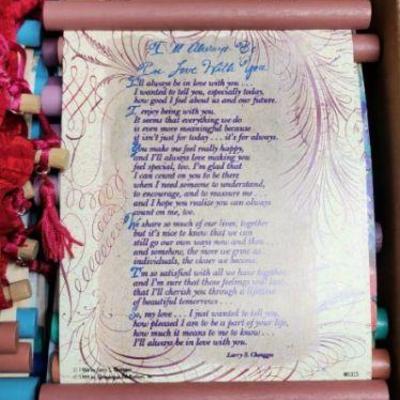 I'll Always Be
In Love With You
I'll always be in love with you . . .
I wanted to tell you, especially today,
how good I feel about us and our future.
I enjoy being with you.
It seems that everything we do
is even more meaningful because
it isn't just for today . . . it's for always.
You make me feel really happy,
and I'll always love making you
feel special, too. I'm glad that
I can count on you to be there
when I need someone to understand,
to encourage, and to reassure me . . .
and I hope you realize you can always
count on me, too.
We share so much of our lives, together
but it's nice to know that we can
still go our own ways now and then . . .
and somehow, the more we grow as
individuals, the closer we become.
I'm so satisfied with all we have together,
and I'm sure that these feelings will last,
that I'll cherish you through a lifetime
of beautiful tomorrows . . .
So, my love . . . I just wanted to tell you,
how pleased I am to be a part of your life,
how much it means to me to know . . .
I'll always be in love with you.
Larry S. Chengges